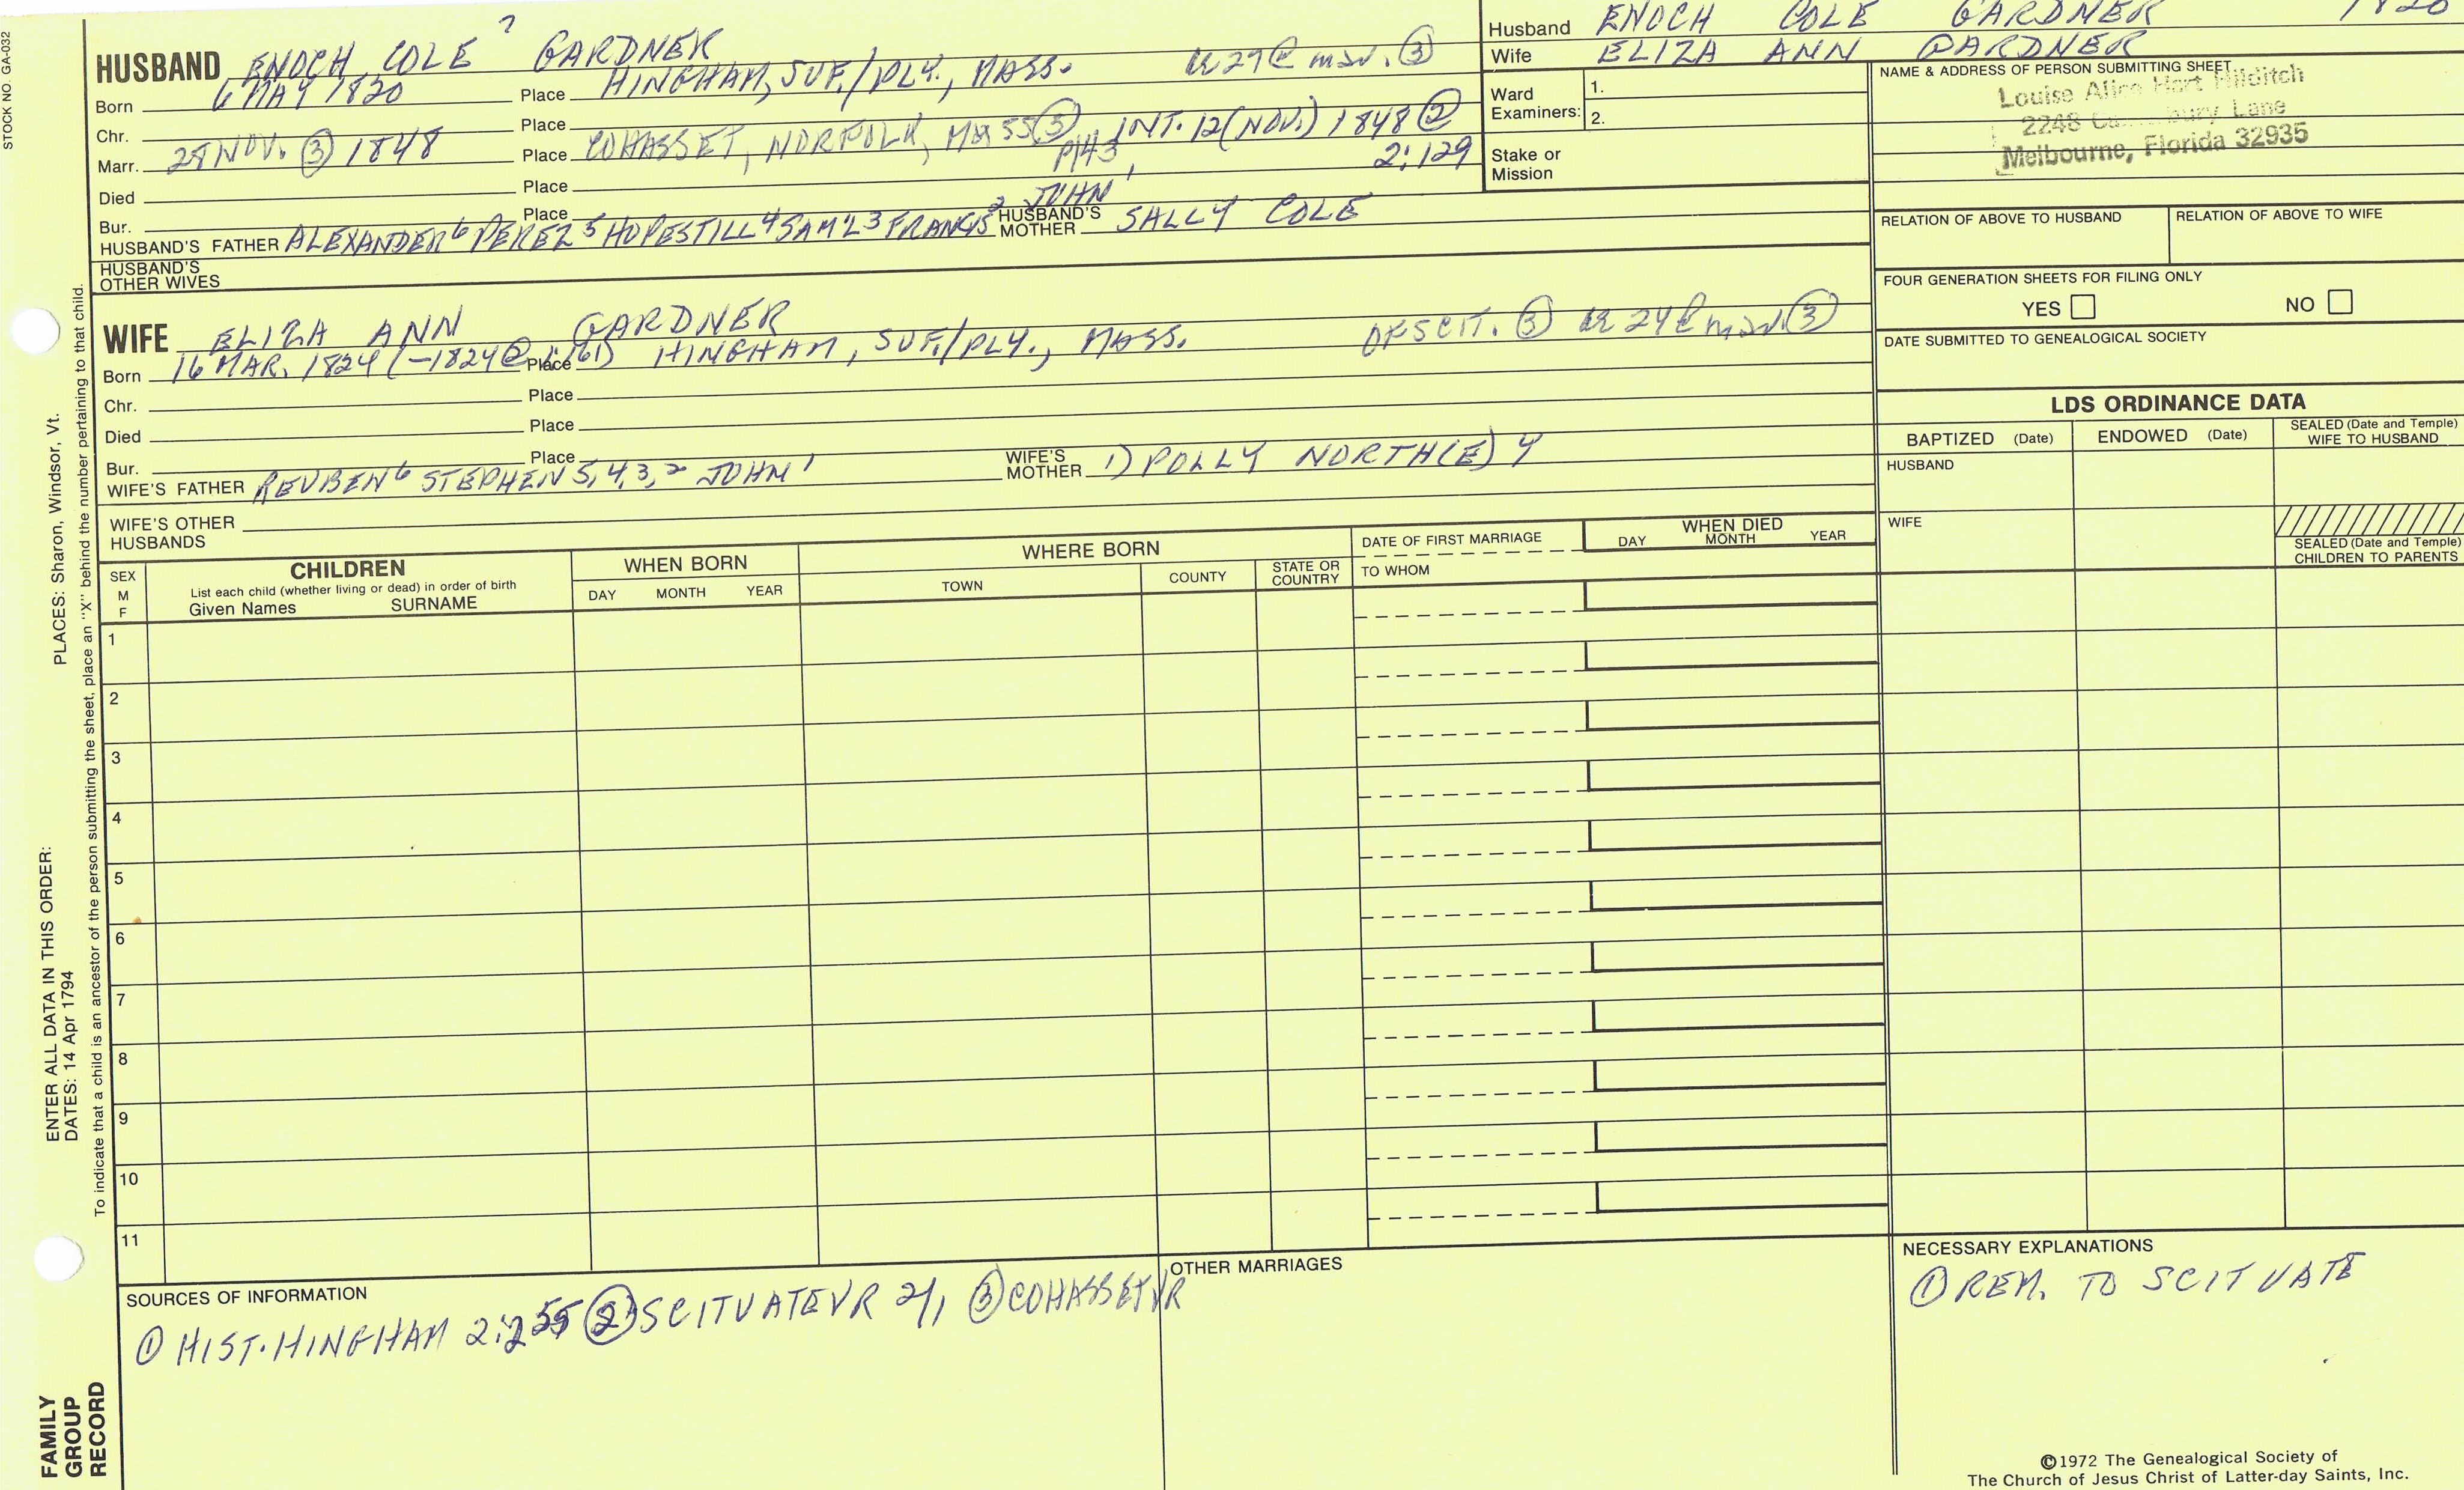 STOCK NO. GA-032
PLACES: Sharon, Windsor, Vt.
ENTER ALL DATA IN THIS ORDER:
DATES: 14 Apr 1794
To indicate that a child is an ancestor of the person submitting the sheet, place an "X" behind the number pertaining to that child.
FAMILY
GROUP
RECORD
HUSBAND ENOCH COLE 7 GARDNER
Born 6 MAY 1820 Place HINGHAM, SUF./PLY., MASS. 29 @ ③
Chr. Place
Marr. 28 NOV. ③ 1848 Place COHASSET, NORFOLK, MASS ③ P143 INT. 12 (NOV.) 1848 ② 2:129
Died Place
Bur. Place
HUSBAND'S FATHER ALEXANDER 6 PEREZ 5 HOPESTILL 4 SAM'L 3 FRANCIS 2 JOHN 1 HUSBAND'S MOTHER SALLY COLE
HUSBAND'S
OTHER WIVES
Husband ENOCH COLE GARDNER 1820
Wife ELIZA ANN GARDNER
Ward
Examiners:
1.
2.
Stake or
Mission
NAME & ADDRESS OF PERSON SUBMITTING SHEET
Louise Alice Hart Hilditch
2248 Lane
Melbourne, Florida 32935
RELATION OF ABOVE TO HUSBAND RELATION OF ABOVE TO WIFE
FOUR GENERATION SHEETS FOR FILING ONLY
YES NO
DATE SUBMITTED TO GENEALOGICAL SOCIETY
WIFE ELIZA ANN GARDNER
Born 16 MAR. 1824 (-1824 @ 1:161) Place HINGHAM, SUF./PLY., MASS. OF SCIT. ③ 24 @ ③
Chr. Place
Died Place
Bur. Place
WIFE'S FATHER REUBEN 6 STEPHEN 5,4,3,2 JOHN 1 WIFE'S MOTHER 1) POLLY NORTH(E)Y
WIFE'S OTHER
HUSBANDS
LDS ORDINANCE DATA
BAPTIZED (Date) ENDOWED (Date) SEALED (Date and Temple) WIFE TO HUSBAND
HUSBAND
WIFE
SEALED (Date and Temple) CHILDREN TO PARENTS
SEX
M
F
CHILDREN
List each child (whether living or dead) in order of birth
Given Names SURNAME
WHEN BORN
DAY MONTH YEAR
WHERE BORN
TOWN COUNTY STATE OR COUNTRY
DATE OF FIRST MARRIAGE
TO WHOM
WHEN DIED
DAY MONTH YEAR
1
2
3
4
5
6
7
8
9
10
11
SOURCES OF INFORMATION
① HIST. HINGHAM 2:255 ② SCITUATE VR 2/1 ③ COHASSET VR
OTHER MARRIAGES
NECESSARY EXPLANATIONS
① REM. TO SCITUATE
©1972 The Genealogical Society of
The Church of Jesus Christ of Latter-day Saints, Inc.